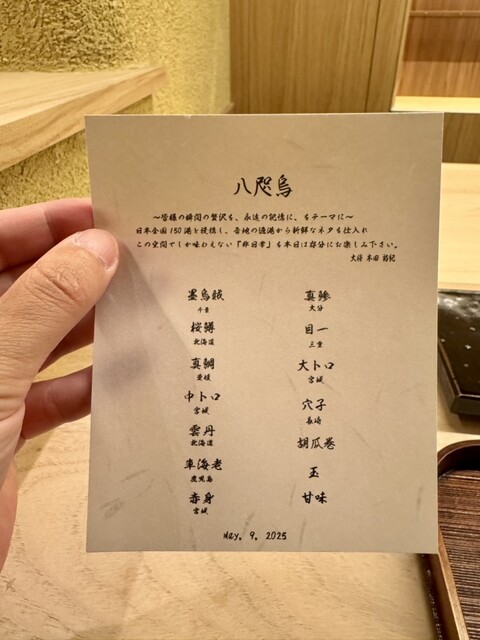 八咫烏
〜皆様の瞬間の贅沢を、永遠の記憶に、をテーマに〜
日本全国150港と提携し、各地の漁港から新鮮なネタを仕入れ
この空間でしか味わえない『非日常』を本日は存分にお楽しみ下さい。
大将 本田
墨烏賊
千葉
桜鱒
北海道
真鯛
愛媛
中トロ
宮城
雲丹
北海道
車海老
鹿児島
赤身
宮城
真鯵
大分
目一
三重
大トロ
宮城
穴子
長崎
胡瓜巻
玉
甘味
May. 9. 2025